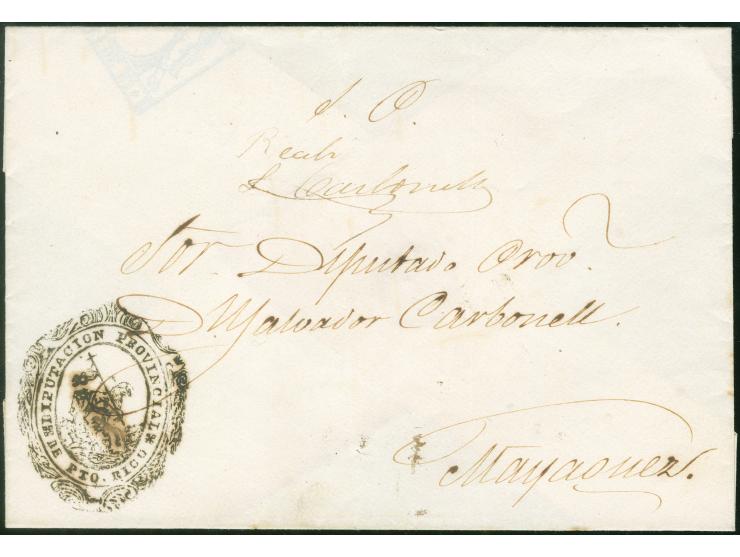 S. O.
S. Carbonell
Sor. Diputado Prov.
D. Salvador Carbonell.
DIPUTACION PROVINCIAL
DE PTO. RICO
Mayaguez.